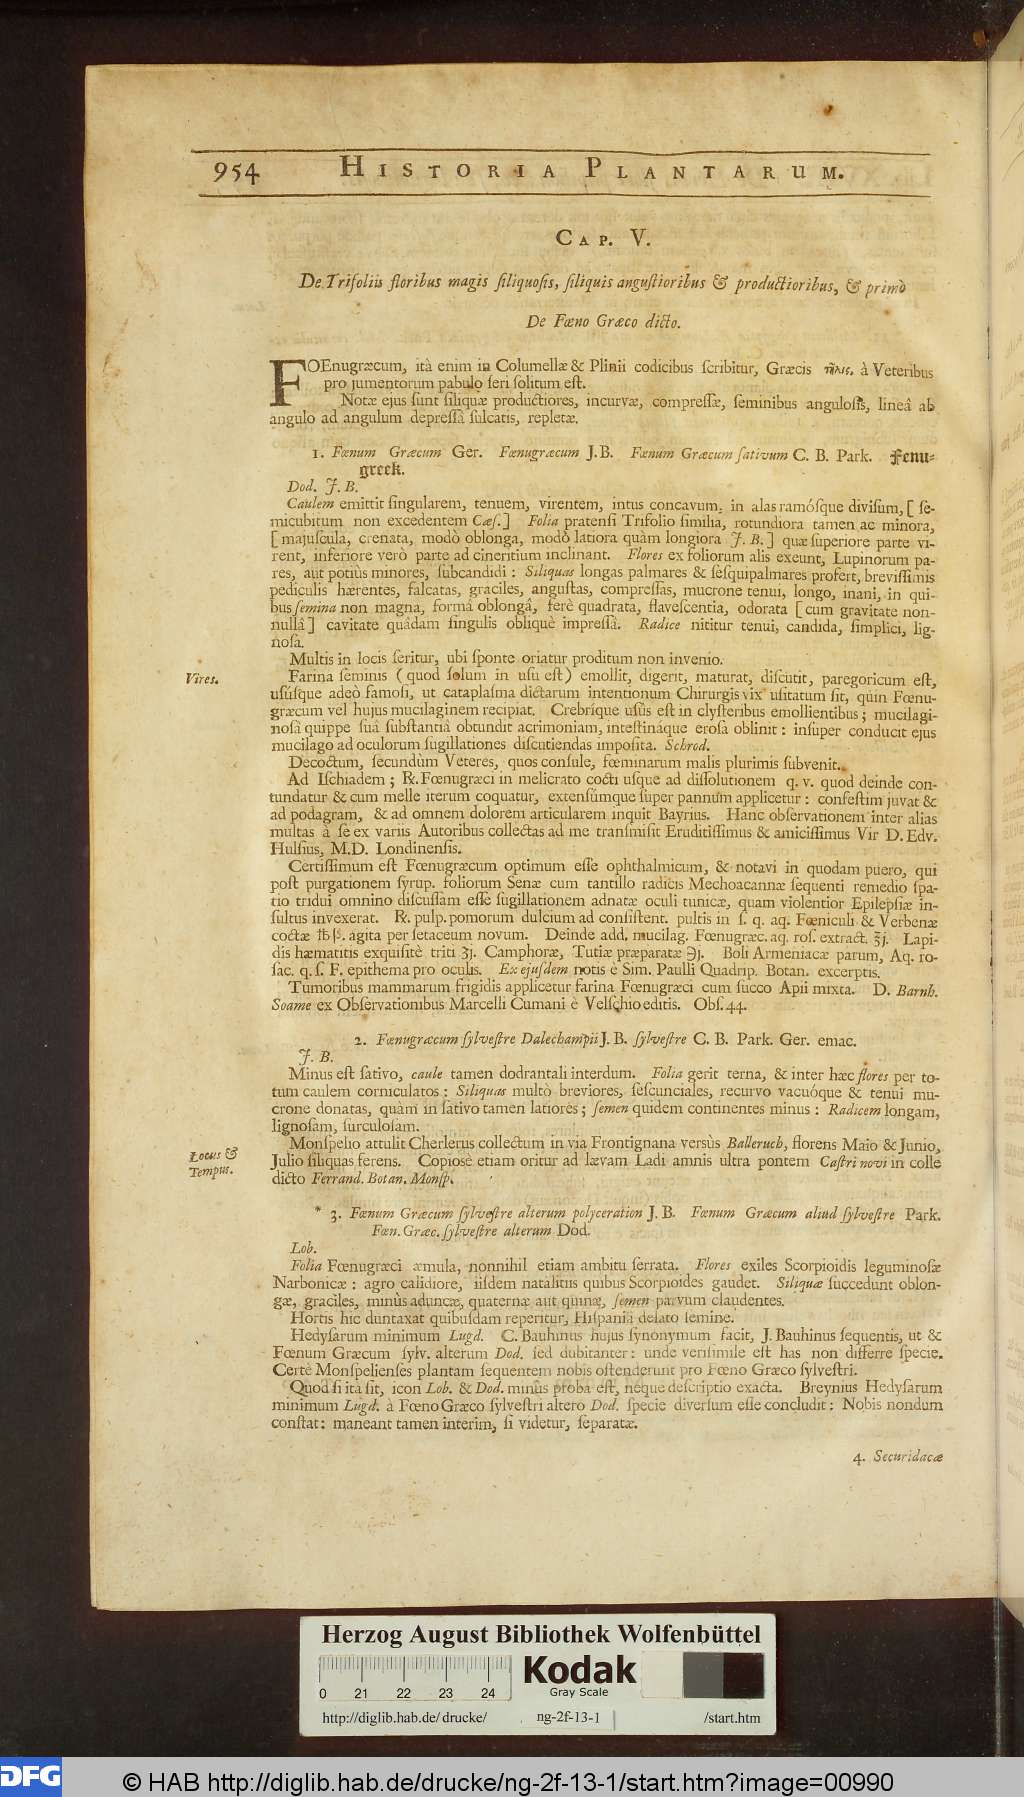 954 HISTORIA PLANTARUM.
CAP. V.
De Trifoliis floribus magis ſiliquoſis, ſiliquis anguſtioribus & productioribus, & primò
De Fœno Græco dicto.
FOEnugræcum, ità enim in Columellæ & Plinii codicibus ſcribitur, Græcis τῆλις. à Veteribus
pro jumentorum pabulo ſeri ſolitum eſt.
Notæ ejus ſunt ſiliquæ productiores, incurvæ, compreſſæ, ſeminibus anguloſis, lineâ ab
angulo ad angulum depreſſâ ſulcatis, repletæ.
1. Fœnum Græcum Ger. Fœnugræcum J.B. Fœnum Græcum ſativum C. B. Park. Fenu-
greek.
Dod. J. B.
Caulem emittit ſingularem, tenuem, virentem, intus concavum, in alas ramóſque diviſum, [ ſe-
micubitum non excedentem Cæſ.] Folia pratenſi Trifolio ſimilia, rotundiora tamen ac minora,
[ majuſcula, crenata, modò oblonga, modò latiora quàm longiora J. B. ] quæ ſuperiore parte vi-
rent, inferiore verò parte ad cineritium inclinant. Flores ex foliorum alis exeunt, Lupinorum pa-
res, aut potiùs minores, ſubcandidi : Siliquas longas palmares & ſeſquipalmares profert, breviſſimis
pediculis hærentes, falcatas, graciles, anguſtas, compreſſas, mucrone tenui, longo, inani, in qui-
bus ſemina non magna, formâ oblongâ, ferè quadrata, flaveſcentia, odorata [ cum gravitate non-
nullâ ] cavitate quâdam ſingulis obliquè impreſſâ. Radice nititur tenui, candida, ſimplici, lig-
noſa.
Multis in locis ſeritur, ubi ſponte oriatur proditum non invenio.
Vires.
Farina ſeminis ( quod ſolum in uſu eſt ) emollit, digerit, maturat, diſcutit, paregoricum eſt,
uſúſque adeò famoſi, ut cataplaſma dictarum intentionum Chirurgis vix uſitatum ſit, quin Fœnu-
græcum vel hujus mucilaginem recipiat. Crebríque uſûs eſt in clyſteribus emollientibus ; mucilagi-
noſâ quippe ſuâ ſubſtantiâ obtundit acrimoniam, inteſtináque eroſa oblinit : inſuper conducit ejus
mucilago ad oculorum ſugillationes diſcutiendas impoſita. Schrod.
Decoctum, ſecundùm Veteres, quos conſule, fœminarum malis plurimis ſubvenit.
Ad Iſchiadem ; ℞. Fœnugræci in melicrato cocti uſque ad diſſolutionem q. v. quod deinde con-
tundatur & cum melle iterum coquatur, extenſúmque ſuper pannum applicetur : confeſtim juvat &
ad podagram, & ad omnem dolorem articularem inquit Bayrius. Hanc obſervationem inter alias
multas à ſe ex variis Autoribus collectas ad me tranſmiſit Eruditiſſimus & amiciſſimus Vir D. Edv.
Hulſius, M.D. Londinenſis.
Certiſſimum eſt Fœnugræcum optimum eſſe ophthalmicum, & notavi in quodam puero, qui
poſt purgationem ſyrup. foliorum Senæ cum tantillo radicis Mechoacannæ ſequenti remedio ſpa-
tio tridui omnino diſcuſſam eſſe ſugillationem adnatæ oculi tunicæ, quam violentior Epilepſiæ in-
ſultus invexerat. ℞. pulp. pomorum dulcium ad conſiſtent. pultis in ſ. q. aq. Fœniculi & Verbenæ
coctæ ℔ß. agita per ſetaceum novum. Deinde add. mucilag. Fœnugræc. aq. roſ. extract. ℥j. Lapi-
dis hæmatitis exquiſitè triti ʒj. Camphoræ, Tutiæ præparatæ ℈j. Boli Armeniacæ parum, Aq. ro-
ſac. q. ſ. F. epithema pro oculis. Ex ejuſdem notis è Sim. Paulli Quadrip. Botan. excerptis.
Tumoribus mammarum frigidis applicetur farina Fœnugræci cum ſucco Apii mixta. D. Barnh.
Soame ex Obſervationibus Marcelli Cumani è Velſchio editis. Obſ. 44.
2. Fœnugræcum ſylveſtre Dalechampii J. B. ſylveſtre C. B. Park. Ger. emac.
J. B.
Minus eſt ſativo, caule tamen dodrantali interdum. Folia gerit terna, & inter hæc flores per to-
tum caulem corniculatos : Siliquas multò breviores, ſeſcunciales, recurvo vacuóque & tenui mu-
crone donatas, quàm in ſativo tamen latiores ; ſemen quidem continentes minus : Radicem longam,
lignoſam, ſurculoſam.
Locus &
Tempus.
Monſpelio attulit Cherlerus collectum in via Frontignana versùs Balleruch, florens Maio & Junio,
Julio ſiliquas ferens. Copioſè etiam oritur ad lævam Ladi amnis ultra pontem Caſtri novi in colle
dicto Ferrand. Botan. Monſp.
* 3. Fœnum Græcum ſylveſtre alterum polyceration J. B. Fœnum Græcum aliud ſylveſtre Park.
Fœn. Græc. ſylveſtre alterum Dod.
Lob.
Folia Fœnugræci æmula, nonnihil etiam ambitu ſerrata. Flores exiles Scorpioidis leguminoſæ
Narbonicæ : agro calidiore, iiſdem natalitiis quibus Scorpioides gaudet. Siliquæ ſuccedunt oblon-
gæ, graciles, minùs aduncæ, quaternæ aut quinæ, ſemen parvum claudentes.
Hortis hic duntaxat quibuſdam reperitur, Hiſpaniâ delato ſemine.
Hedyſarum minimum Lugd. C. Bauhinus hujus ſynonymum facit, J. Bauhinus ſequentis, ut &
Fœnum Græcum ſylv. alterum Dod. ſed dubitanter : unde veriſimile eſt has non differre ſpecie.
Certè Monſpelienſes plantam ſequentem nobis oſtenderunt pro Fœno Græco ſylveſtri.
Quod ſi ità ſit, icon Lob. & Dod. minùs proba eſt, neque deſcriptio exacta. Breynius Hedyſarum
minimum Lugd. à Fœno Græco ſylveſtri altero Dod. ſpecie diverſum eſſe concludit : Nobis nondum
conſtat : maneant tamen interim, ſi videtur, ſeparatæ.
4. Securidacæ
Herzog August Bibliothek Wolfenbüttel
Kodak
Gray Scale
0 21 22 23 24
http://diglib.hab.de/drucke/ ng-2f-13-1 /start.htm
DFG
© HAB http://diglib.hab.de/drucke/ng-2f-13-1/start.htm?image=00990